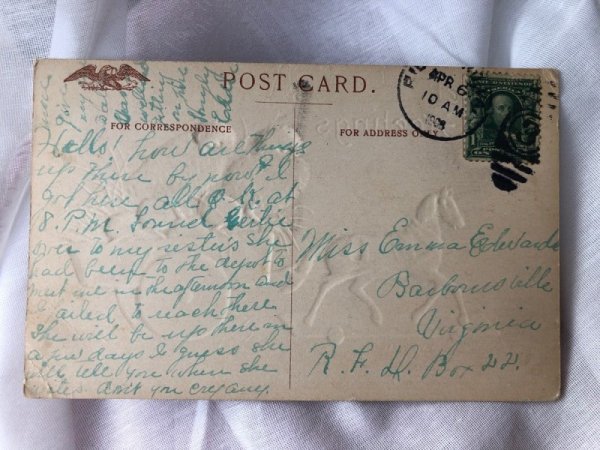 POST CARD.
FOR CORRESPONDENCE
FOR ADDRESS ONLY
APR 6
10 AM
1908
Hello! how are things
up there by now, I
got here all O.K. at
8. P.M. found Gertie
over to my sisters she
had been to the depot to
meet me in the afternoon and
failed to reach there
She will be up there in
a few days I guess she
will tell you when she
writes don't you cry any.
more
give
my
on the
Miss Emma Edwards
Barboursville
Virginia
R. F. D. Box 22.